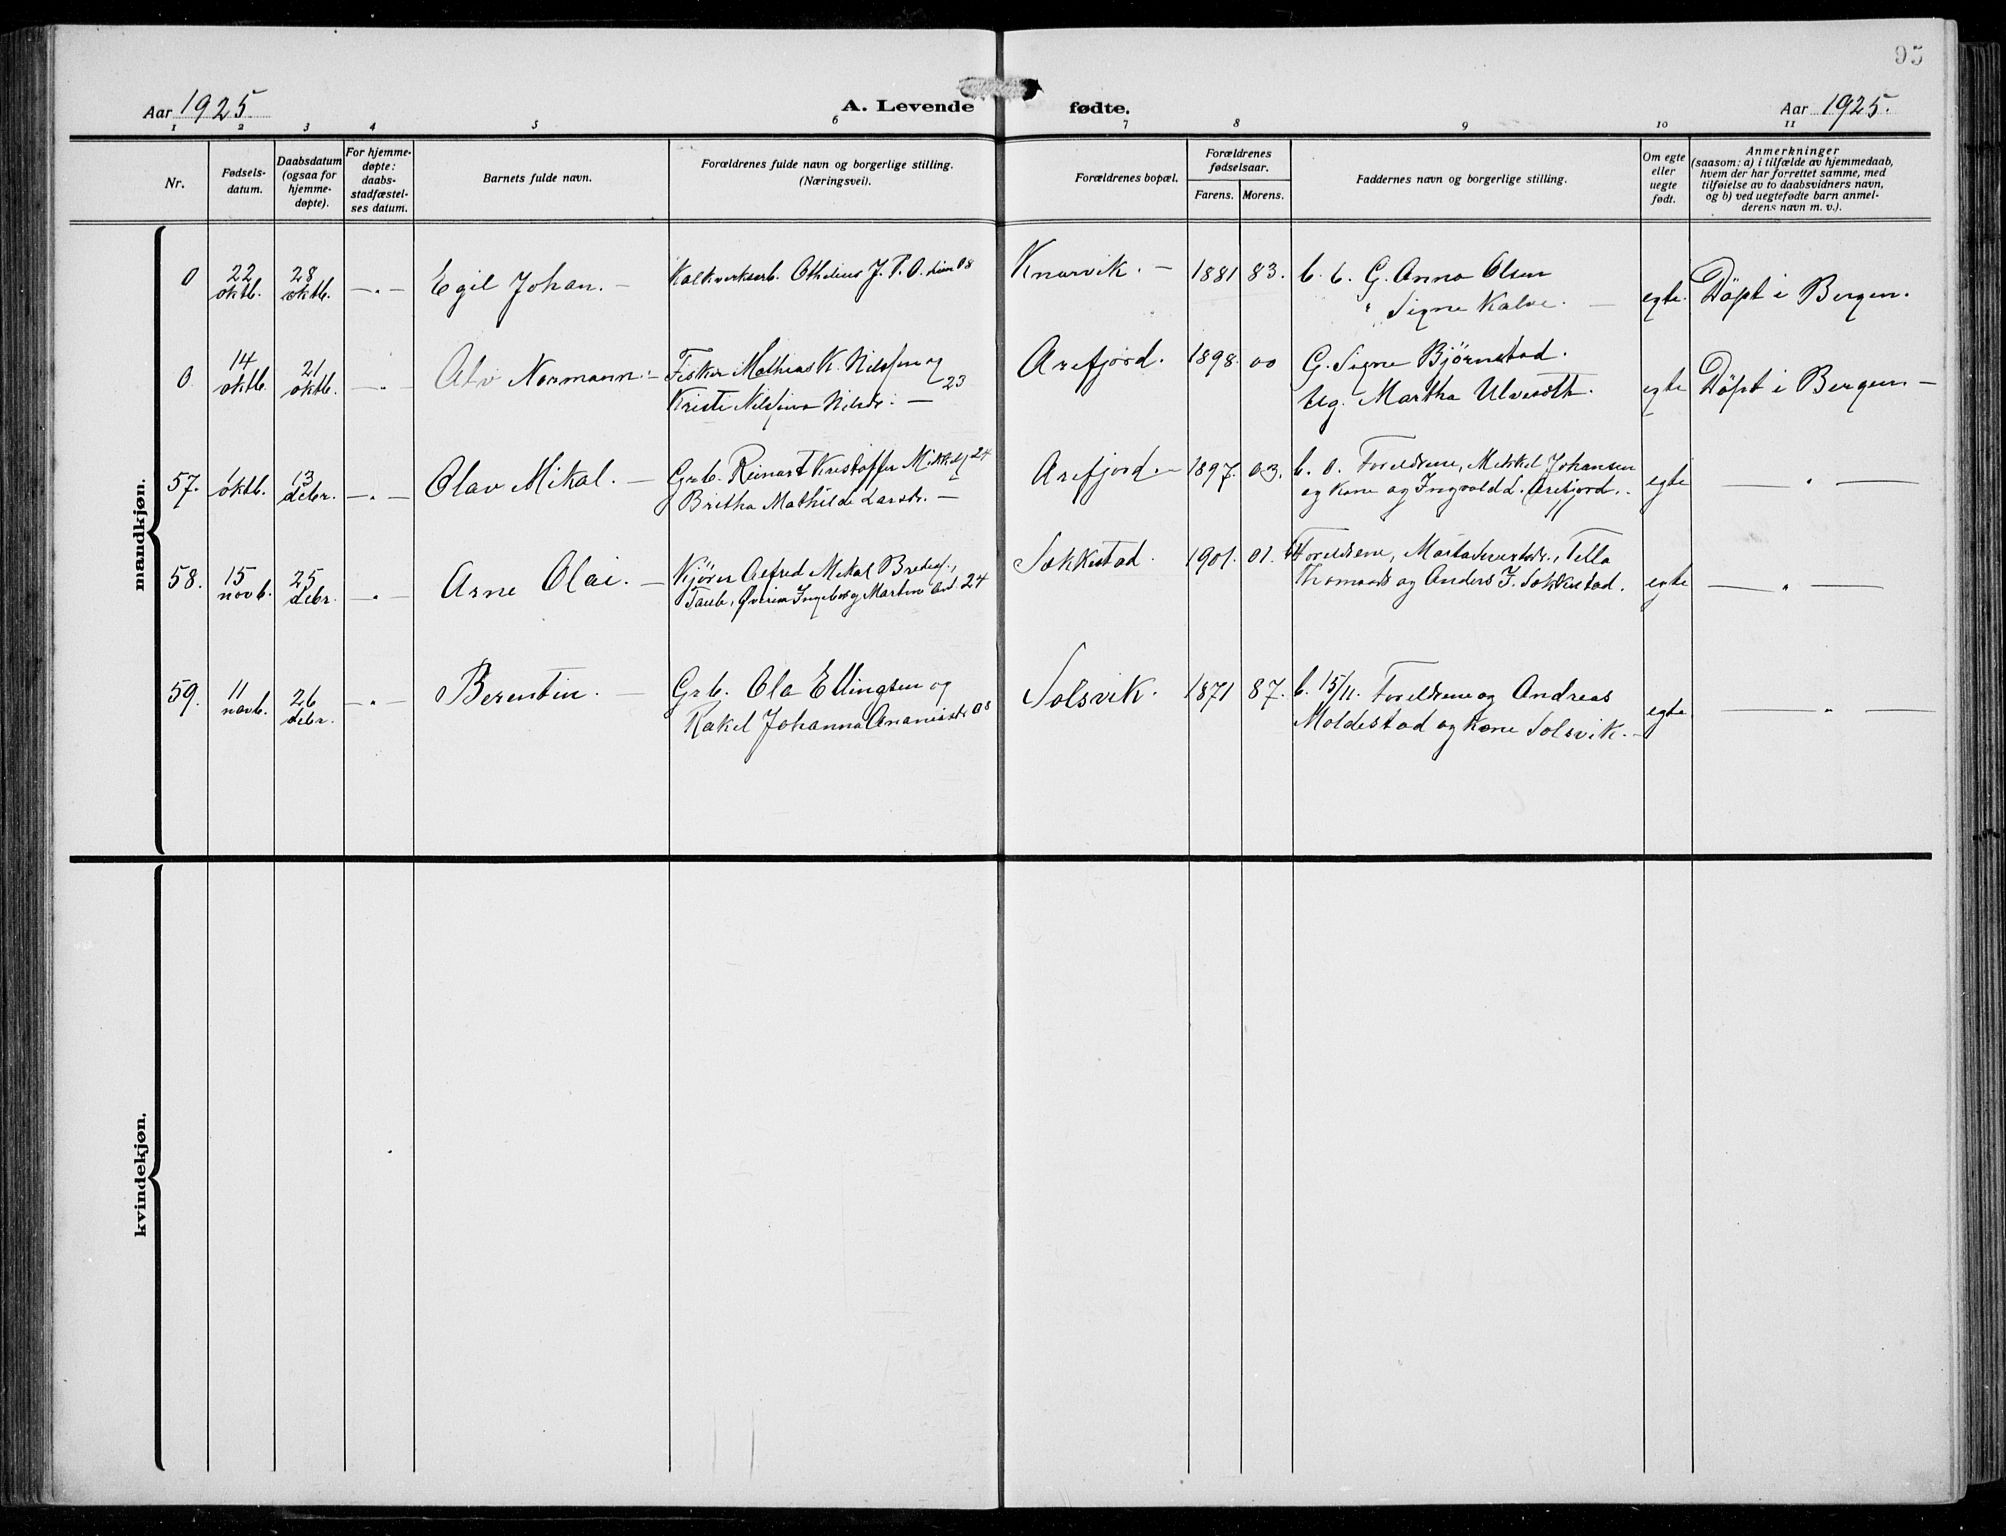 95
Aar 1925
A. Levende fødte.
Aar 1925.
1 2 3 4 5 6 7 8 9 10 11
Nr.
Fødsels-
datum.
Daabsdatum
(ogsaa for
hjemme-
døpte).
For hjemme-
døpte:
daabs-
stadfæstel-
ses datum.
Barnets fulde navn.
Forældrenes fulde navn og borgerlige stilling.
(Næringsvei).
Forældrenes bopæl.
Forældrenes
fødselsaar.
Farens. Morens.
Faddernes navn og borgerlige stilling.
Om egte
eller
uegte
født.
Anmerkninger
(saasom: a) i tilfælde av hjemmedaab,
hvem der har forrettet samme, med
tilføielse av to daabsvidners navn,
og b) ved uegtefødte barn anmel-
derens navn m. v.).
mandkjøn.
0 22 oktb. 28 oktb. —„— Egil Johan. — Kalkverksarb. Othelius J. P. O. 08 Knarvik. — 1881 83. b. b. G. Anna Olsen
„ Signe Kalve. — egte. Döpt i Bergen.
0. 14 oktb. 21 oktb. —„— Alv Normann. — Fisker Mathias K. Nilssen og
Kristi Nilsina Nilsdr. — 23 Arefjord. 1898. 00 G. Signe Bjørnstad.
Ug. Martha Ulveseth. egte Döpt i Bergen —
57. 1 oktb. 13 debr. —„— Olav Mikal. — Grb. Reinart Kristoffer 24
Britha Mathilde Larsdr. — Arefjord. — 1897. 03. b. o. Foreldrene, Mikkel Johansen
og kone og Ingvald L. Arefjord. egte — „ —
58. 15 novb. 25 debr. —„— Arne Olai. — Kjörer Alfred Mikal
Ingeborg Martine 24 Sokkestad. 1901. 01. Foreldrene,
og Anders J. Sokkestad. egte — „ —
59. 11 novb. 26 debr. —„— Berentin. — Grb. Ola Ellingsen og
Rakel Johanna Ananiasdr 08 Solsvik. 1871 87. b. 15/11. Foreldrene og Andreas
Moldestad og kone Solsvik. — egte — „ —
kvindekjøn.